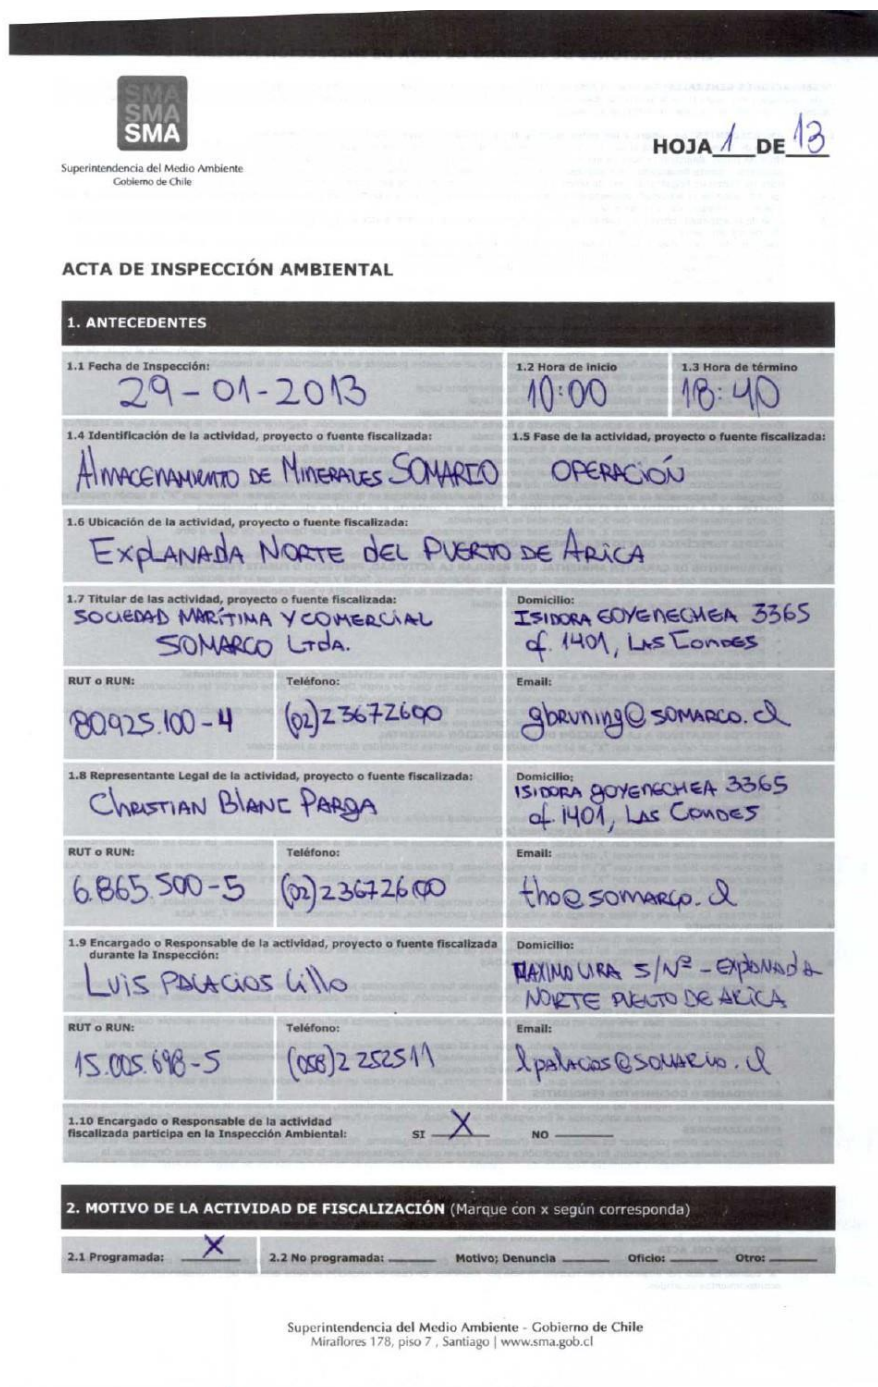 SMA
SMA
SMA
Superintendencia del Medio Ambiente
Gobierno de Chile
HOJA 1 DE 13
ACTA DE INSPECCIÓN AMBIENTAL
1. ANTECEDENTES
1.1 Fecha de Inspección:
29-01-2013
1.2 Hora de inicio
10:00
1.3 Hora de término
18:40
1.4 Identificación de la actividad, proyecto o fuente fiscalizada:
Almacenamiento de Minerales SOMARCO
1.5 Fase de la actividad, proyecto o fuente fiscalizada:
OPERACIÓN
1.6 Ubicación de la actividad, proyecto o fuente fiscalizada:
Explanada Norte del Puerto de Arica
1.7 Titular de las actividad, proyecto o fuente fiscalizada:
SOCIEDAD MARÍTIMA Y COMERCIAL
SOMARCO Ltda.
Domicilio:
ISIDORA GOYENECHEA 3365
of. 1401, Las Condes
RUT o RUN:
80.925.100-4
Teléfono:
(02)23672600
Email:
gbruning@somarco.cl
1.8 Representante Legal de la actividad, proyecto o fuente fiscalizada:
Christian Blanc Parga
Domicilio:
ISIDORA GOYENECHEA 3365
of. 1401, Las Condes
RUT o RUN:
6.865.500-5
Teléfono:
(02)23672600
Email:
tho@somarco.cl
1.9 Encargado o Responsable de la actividad, proyecto o fuente fiscalizada
durante la Inspección:
Luis Palacios Lillo
Domicilio:
MAXIMO LIRA S/Nº - Explanada
NORTE PUERTO DE ARICA
RUT o RUN:
15.005.698-5
Teléfono:
(058)2 252511
Email:
lpalacios@somarco.cl
1.10 Encargado o Responsable de la actividad
fiscalizada participa en la Inspección Ambiental: SI X NO
2. MOTIVO DE LA ACTIVIDAD DE FISCALIZACIÓN (Marque con x según corresponda)
2.1 Programada: X 2.2 No programada: Motivo; Denuncia Oficio: Otro:
Superintendencia del Medio Ambiente - Gobierno de Chile
Miraflores 178, piso 7 , Santiago | www.sma.gob.cl